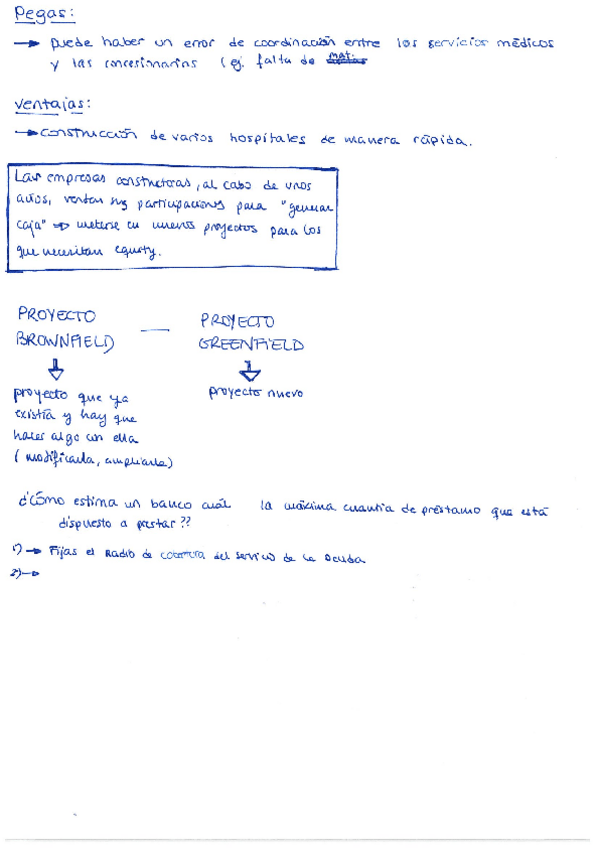 Pegas:
→ Puede haber un error de coordinación entre los servicios médicos
y las concesionarias (ej. falta de mat.
Ventajas:
→ Construcción de varios hospitales de manera rápida.
Las empresas constructoras, al cabo de unos
años, venden sus participaciones para "generar
caja" → meterse en nuevos proyectos para los
que necesitan equity.
PROYECTO BROWNFIELD — PROYECTO GREENFIELD
proyecto que ya
existía y hay que
hacer algo con ella
(modificarla, ampliarla)
proyecto nuevo
¿Cómo estima un banco cuál la máxima cuantía de préstamo que está
dispuesto a prestar??
1) → Fijas el Radio de cobertura del servicio de la Deuda
2) →